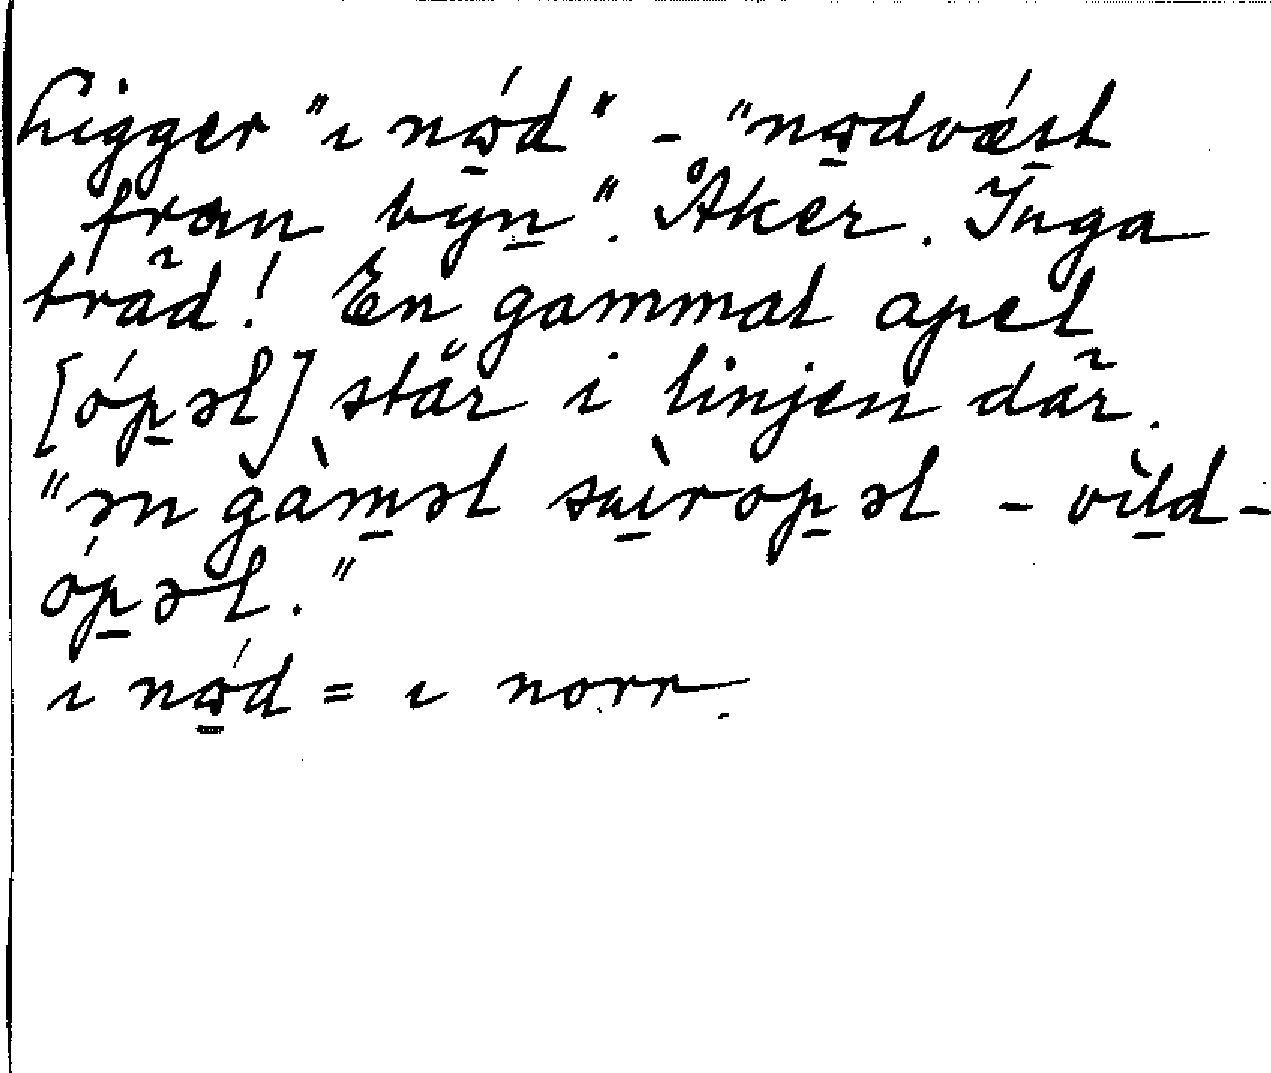 Ligger "ı nɷ̱́d" - "nɷ̱dvǽs̱t
fran byṉ". Åker. Inga
träd! En gammal apel
[óp̱əl] står i linjen där.
"ən gàm̱əl su̱ìrop̱əl - vìḻd-
óp̱əl."
ı nɷ̱́d = ı norr.